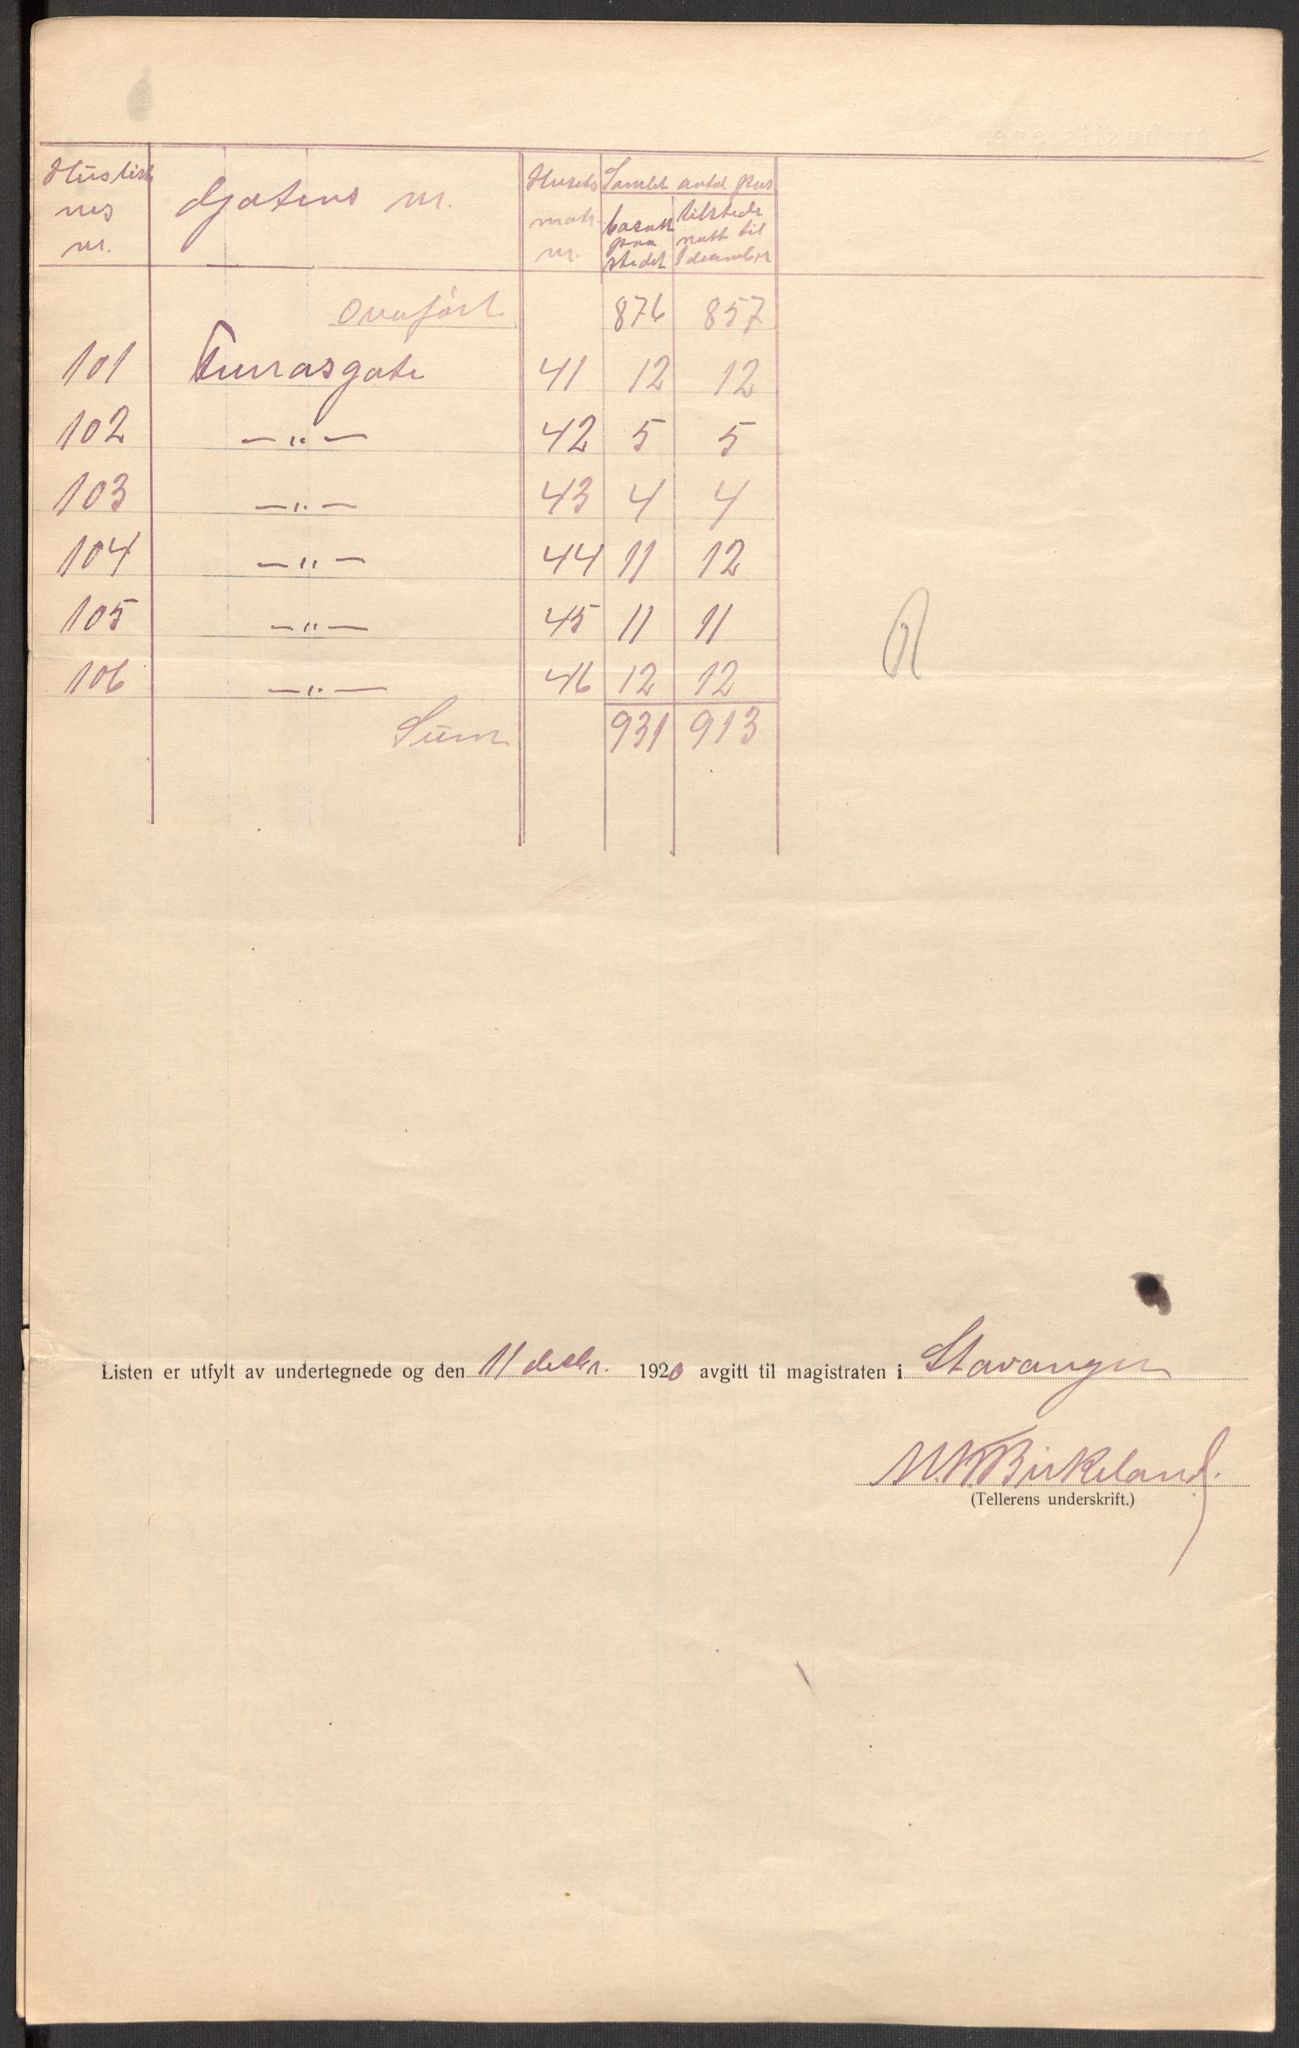 Huslist Gatens nr. Husets Samlet antal pers
nes matr. bosatt tilstede
nr. nr. paa natt til
stedet 1 december
Overført 876 857
101 gate 41 12 12
102 —"— 42 5 5
103 —"— 43 4 4
104 —"— 44 11 12
105 —"— 45 11 11
106 —"— 46 12 12
Sum 931 913
Listen er utfylt av undertegnede og den 11 decbr. 1920 avgitt til magistraten i Stavanger
Birkeland.
(Tellerens underskrift.)